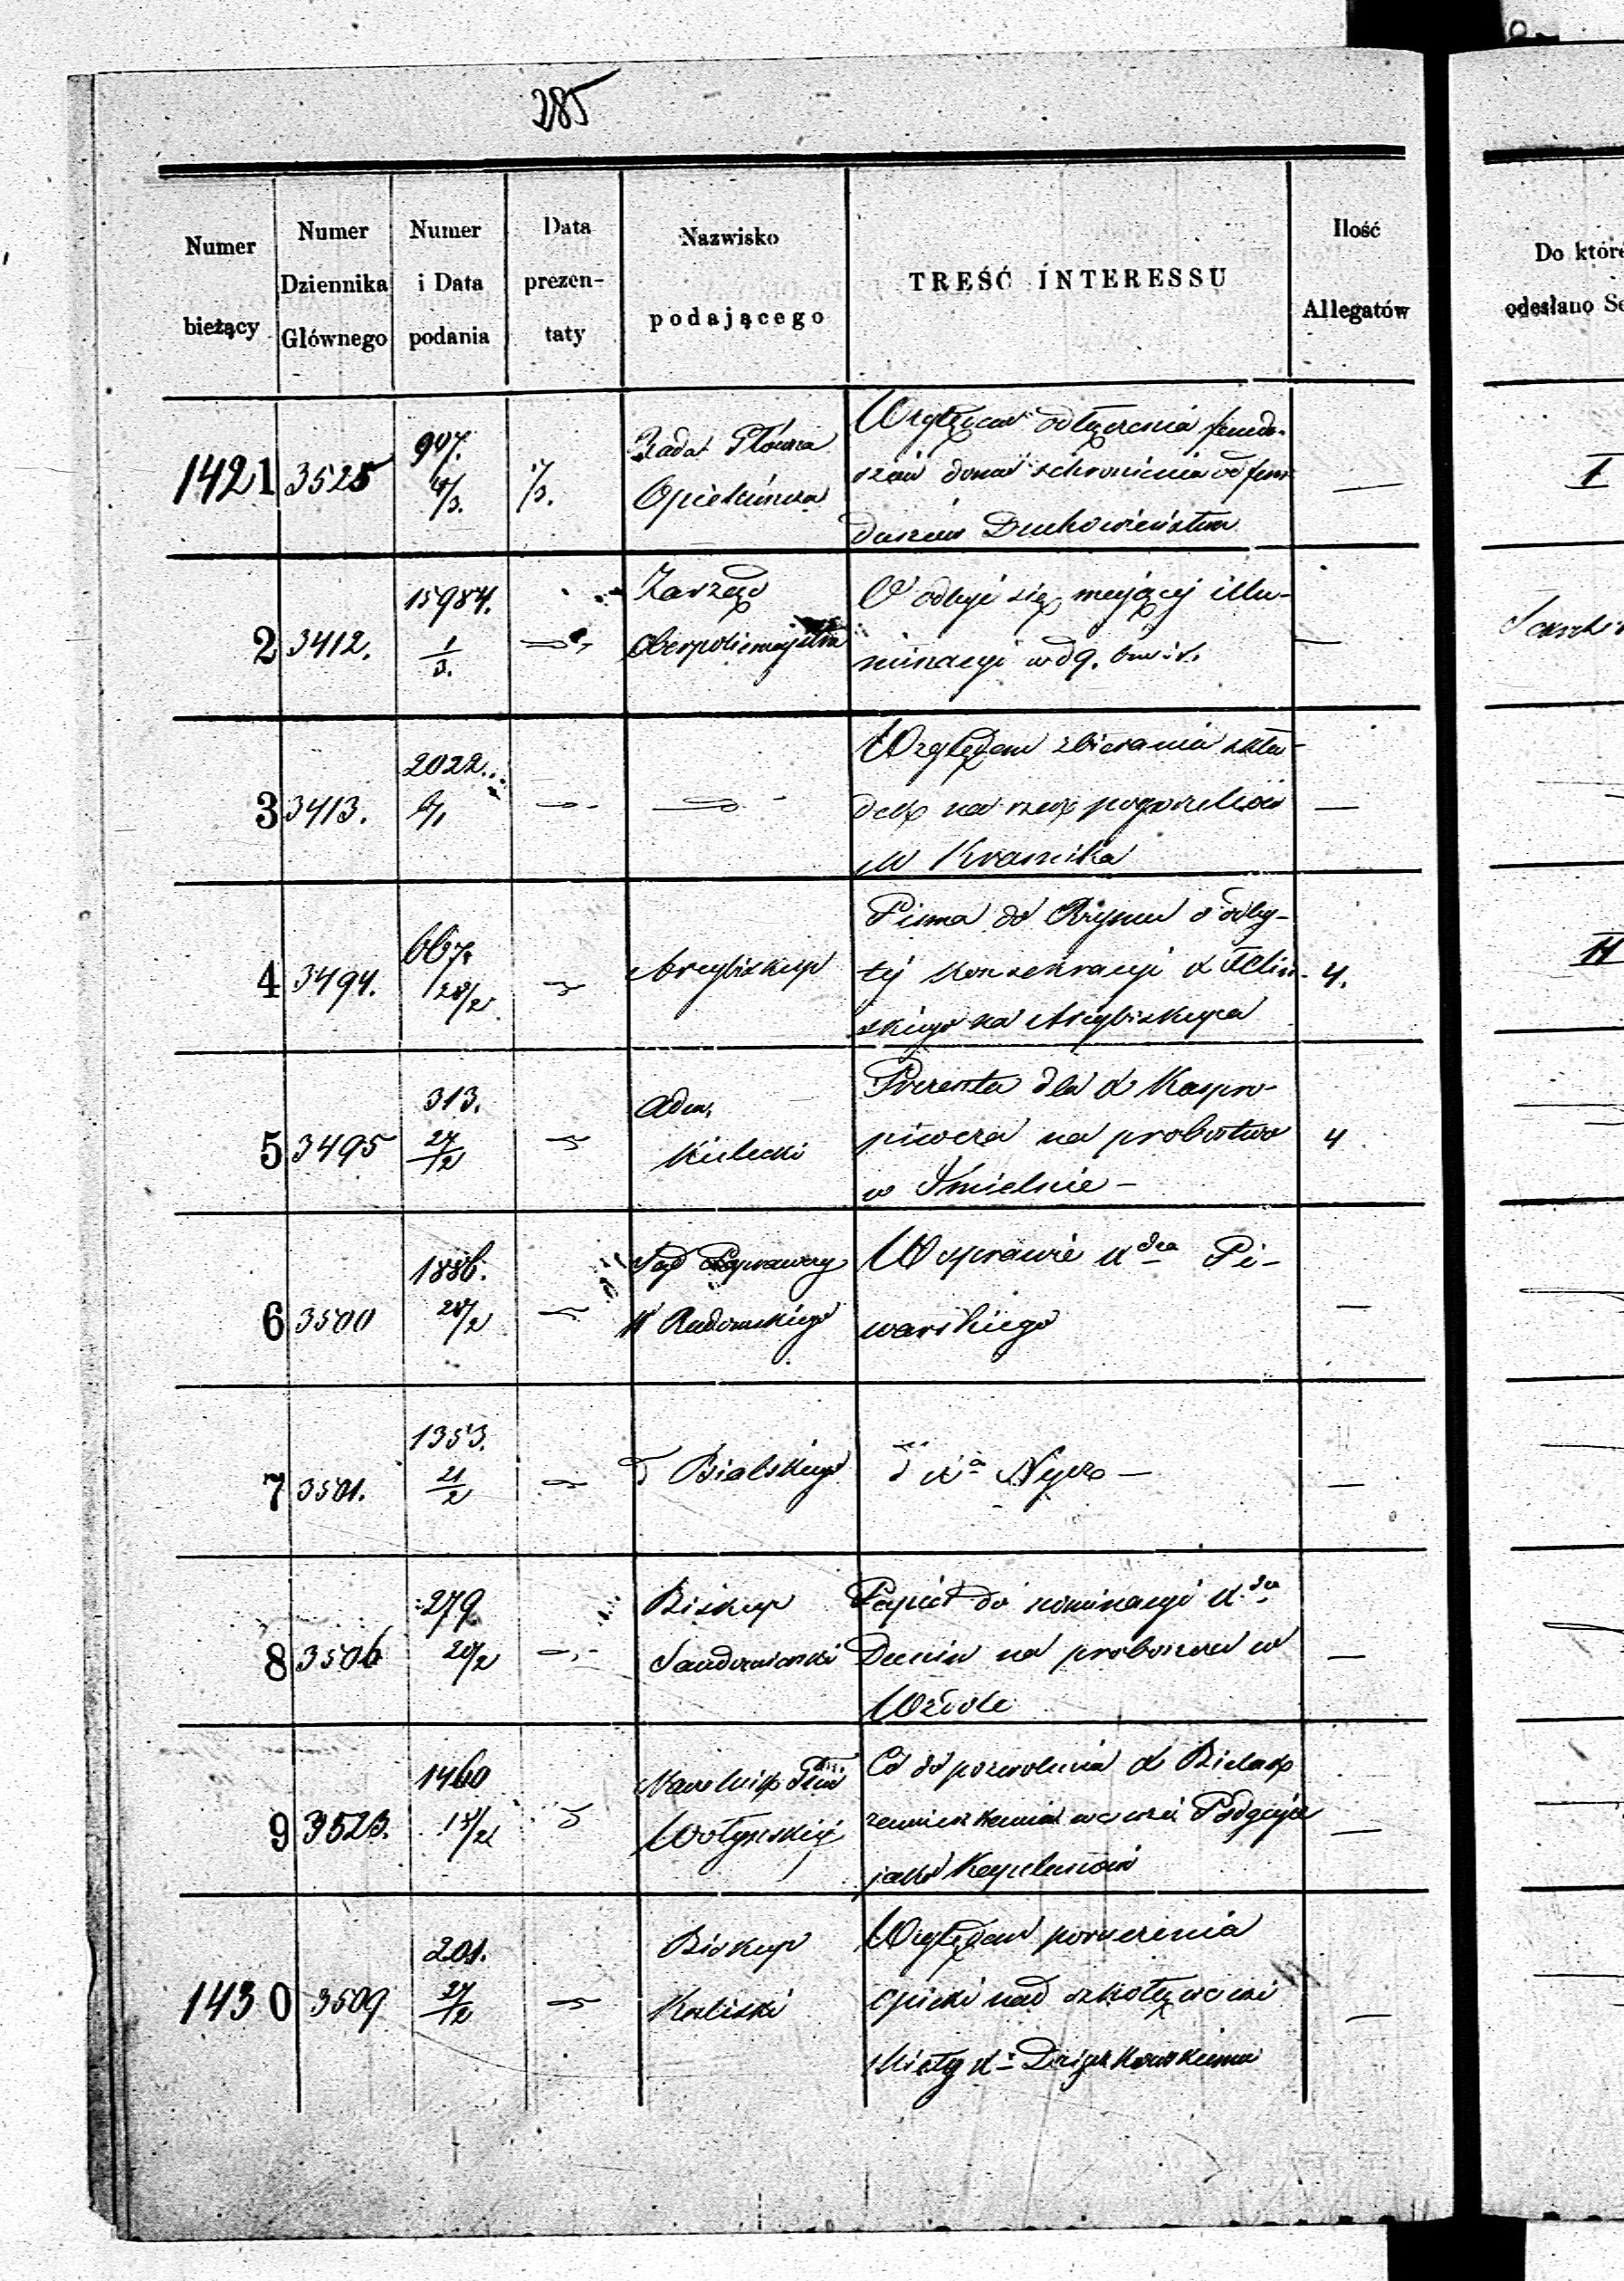 285
Numer bieżący
Numer Dziennika Głównego
Numer i Data podania
Data prezen- taty
Nazwisko podającego
TREŚĆ INTERESSU
Ilość Allegatów
Do które
odesłano Se
1421 3525 907. 4/3. 1/3. Rada Główna Opiekuńcza
Względem odłączenia fundu-
szów domu schronienia od fun
duszów Duchowieństwa
—
I
2 3412. 15984. 1/3. Zarząd Oberpolicmajstra
O odbyć się mającej illu-
minacyi w d 9. b. m. i r.
—
3 3413. 2022.
Względem zbierania skła-
dek na rzecz pogorzelców
M Kraśnika
—
4 3494. 667. 28/2 Arcybiskup
Pisma do Rzymu o odby-
tej konsekracyi X Feliń-
skiego na Arcybiskupa
4.
II
5 3495 313. 27/2 Adm. Kielecki
Prezenta dla X Kaspro-
piwcza na probostwo
w Imielnie —
4
6 3500 1886. 28/2 Sąd Poprawczy W Radomskiego
W sprawie Xdza Pi-
warskiego
—
7 3501. 1353. 21/2 d Bialskiego
d Xa Nycz —
—
8 3506 279. 20/2 Biskup Sandomierski
Papiér do nominacyi X.dza
Dunin na proboszcza w
Wzdole
—
9 3523. 1460 15/2 Naczelnik Wołyński
Co do pozwolenia X Bielak
zamieszkania we wsi Podgajce
jako Kapelanowi
—
1430 3509 201. 27/2 Biskup Kaliski
Względem poruczenia
opieki nad szkołą we wsi
—